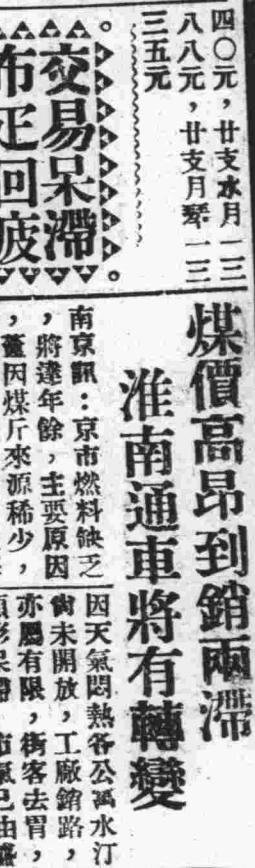 四〇元，廿支水月一三
八八元，廿支月琴一三
三五元
交易呆滯
布疋回疲
煤價高昂到銷兩滯
淮南通車將有轉變
南京訊：京市燃料缺乏
，將達年餘，主要原因
，蓋因煤斤來源稀少，
因天氣悶熱各公司水汀
尙未開放，工廠銷路，
亦屬有限，街客去胃，